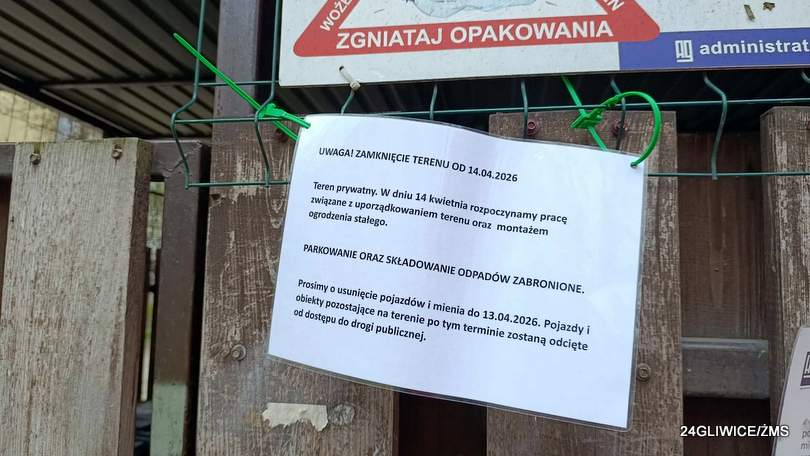 ZGNIATAJ OPAKOWANIA
administrat
UWAGA! ZAMKNIĘCIE TERENU OD 14.04.2026
Teren prywatny. W dniu 14 kwietnia rozpoczynamy pracę
związane z uporządkowaniem terenu oraz montażem
ogrodzenia stałego.
PARKOWANIE ORAZ SKŁADOWANIE ODPADÓW ZABRONIONE.
Prosimy o usunięcie pojazdów i mienia do 13.04.2026. Pojazdy i
obiekty pozostające na terenie po tym terminie zostaną odcięte
od dostępu do drogi publicznej.
24GLIWICE/ŻMS